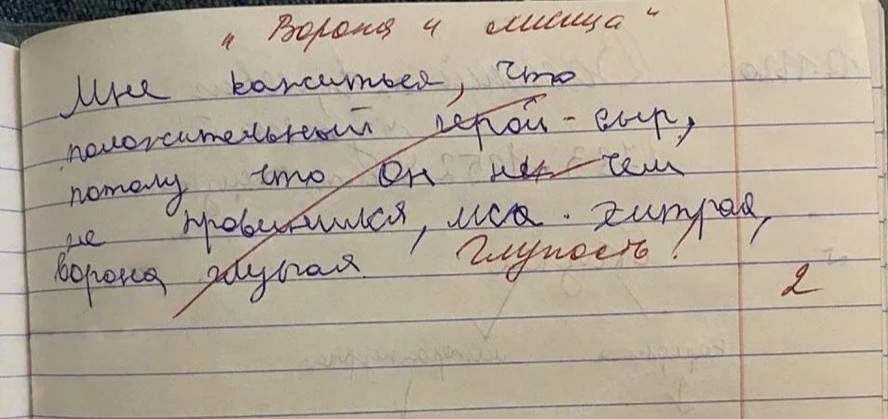 "Ворона и лисица"
Мне кажиться, что
положительный герой - сыр,
потому что он не чем
не провинился, лиса - хитрая,
ворона глупая. Глупость!
2